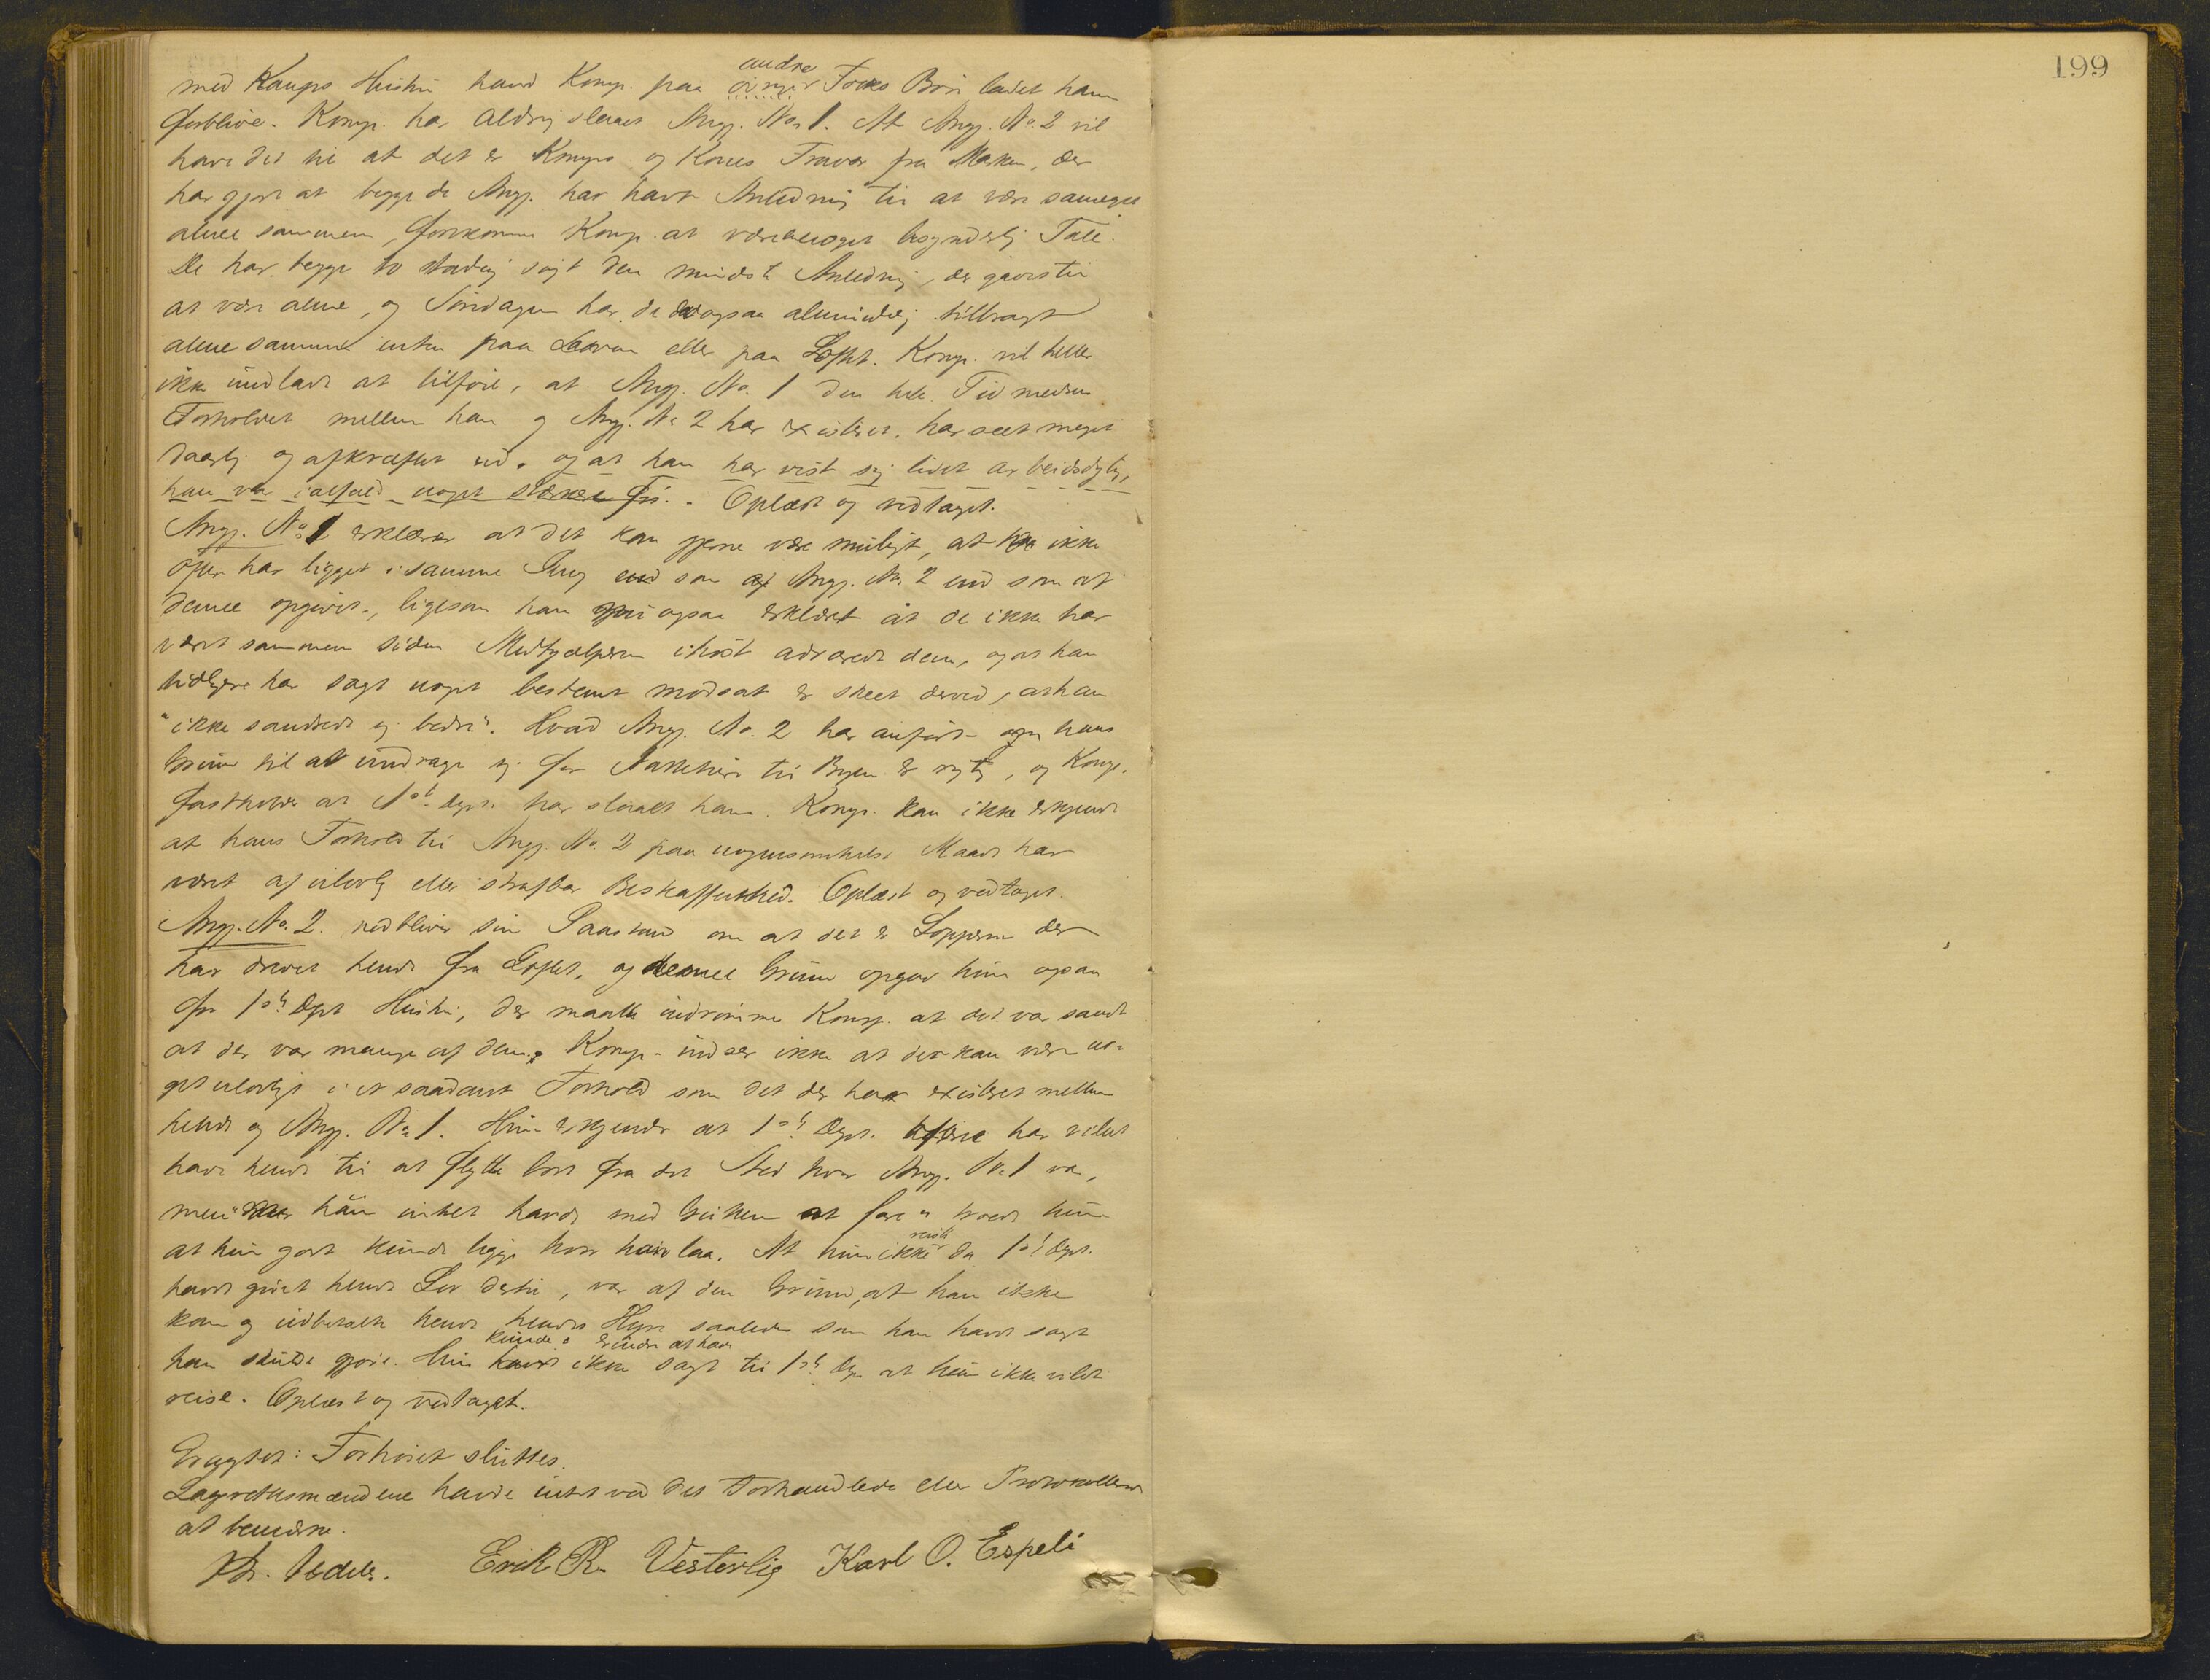 andre
med Komps Hustru havd Komp. paa Folks Bøn ladet ham
forblive. Komp. har aldrig slaaet Ang. No. 1. At Ang. No. 2 vil
have det til at det er Komps og Kones Fravær fra Marken, der
har gjort at begge de Ang. har havt Anledning til at være saameget
alene sammen, forekommer Komp. at være meget besynderlig Tale.
De har begge to stadig søgt den mindste Anledning, der gaves til
at være alene, og Søndagen har de ogsaa almindelig tilbragt
alene sammen enten paa Laaven eller paa Loftet. Komp. vil heller
ikke undlade at tilføie, at Ang. No. 1 den hele Tid medens
Forholdet mellem ham og Ang. No 2 har existeret, har seet meget
daarlig og afkræftet ud, og at han har vist sig lidet arbeidsdygtig,
han var ialfald noget stærkere før. - Oplæst og vedtaget.
Ang. No. 1 erklærer at det kan gjerne være muligt, at han ikke
oftere har ligget i samme Seng som Ang. No. 2 end som af
denne opgivet, ligesom han ogsaa erklæret at de ikke har
været sammen siden Medhjælperen ihøst advarede dem, og at han
tidligere har sagt noget bestemt modsat er skeet derved, at han
"ikke sandsede sig bedre". Hvad Ang. No. 2 har anført om hans
Grunde til at unddrage sig for til Byen er rigtig, og Komp.
fastholder at 1ste Dept. har slaaet ham. Komp. kan ikke erkjende
at hans Forhold til Ang. No. 2 paa nogensomhelst Maade har
været af ulovlig eller strafbar Beskaffenhed. Oplæst og vedtaget.
Ang. No. 2. vedbliver sin Paastand om at det er Lopperne der
har drevet hende fra Loftet, og denne Grund opgav hun ogsaa
for 1ste Dept Hustru, der maatte indrømme Komp. at det var sandt
at der var mange af dem. Komp. indser ikke at der kan være no-
get ulovligt i et saadant Forhold som det der har existeret mellem
hende og Ang. No 1. Hun erkjender at 1ste Dept. har villet
have hende til at flytte bort fra det Sted hvor Ang. No 1 var,
men "da han intet havde med Geiterne at gøre" troede hun
at hun godt kunde ligge hvor han laa. At hun ikke reiste da 1ste Dept.
havde givet hende Lov dertil, var af den Grund, at han ikke
kom og udbetalte hende hendes Hyre saaledes som han havde sagt
kunde erindre at have
han skulde gjøre. Hun ikke sagt til 1ste Dep. at hun ikke vilde
reise. Oplæst og vedtaget.
Eragtet: Forhøret sluttes.
Lagrettesmændene havde intet ved det Forhandlede eller Protokollen
at bemærke.
Erik R. Vesterlig Karl O. Espeli
199